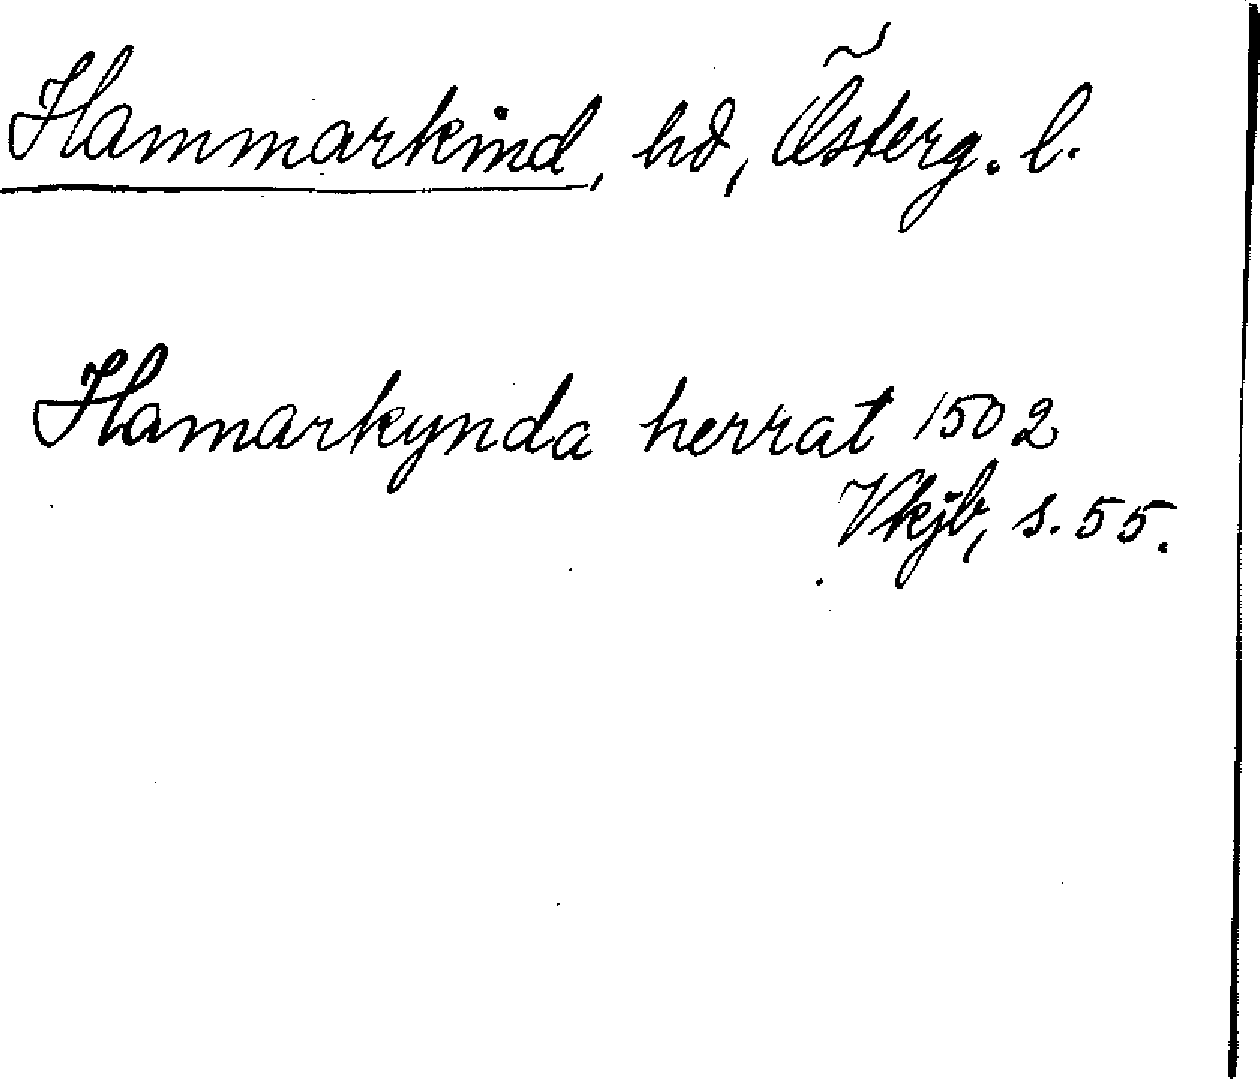 Hammarkind, hd, Österg. l.
Hamarkynda herrat 1502
Vkjb, s. 55.